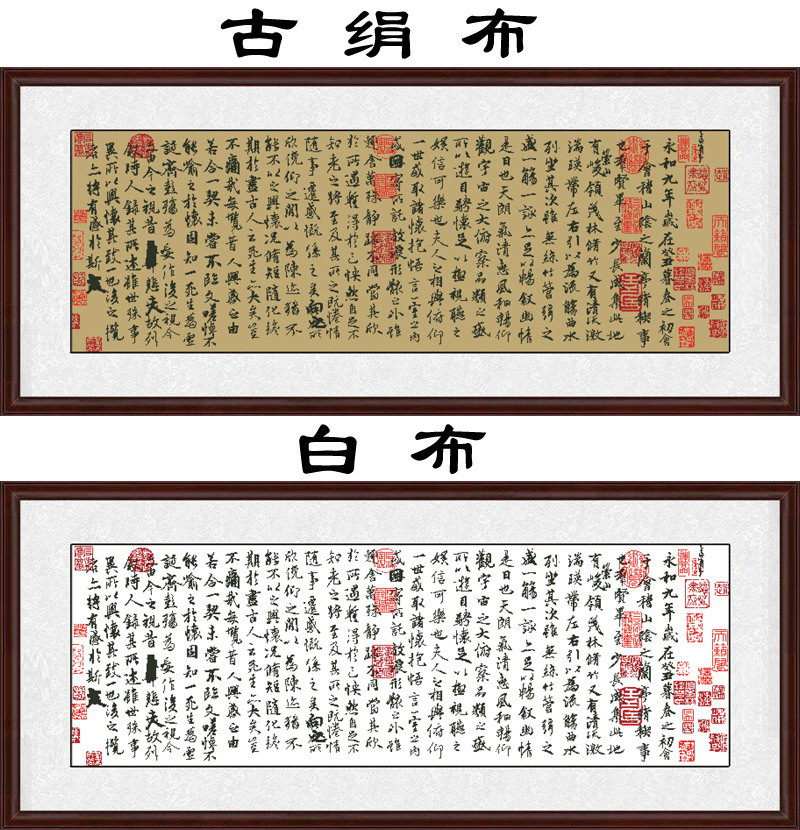 古绢布
永和九年歲在癸丑暮春之初會
于會稽山陰之蘭亭脩禊事
也羣賢畢至少長咸集此地
有崇山峻領茂林脩竹又有清流激
湍暎帶左右引以為流觴曲水
列坐其次雖無絲竹管弦之
盛一觴一詠亦足以暢敘幽情
是日也天朗氣清惠風和暢仰
觀宇宙之大俯察品類之盛
所以遊目騁懷足以極視聽之
娛信可樂也夫人之相與俯仰
一世或取諸懷抱悟言一室之內
或因寄所託放浪形骸之外雖
趣舍萬殊靜躁不同當其欣
於所遇暫得於己怏然自足不
知老之將至及其所之既惓情
隨事遷感慨係之矣向之所
欣俛仰之閒以為陳迹猶不
能不以之興懷況脩短隨化終
期於盡古人云死生亦大矣豈
不痛哉每攬昔人興感之由
若合一契未嘗不臨文嗟悼不
能喻之於懷固知一死生為虛
誕齊彭殤為妄作後之視今
亦由今之視昔悲夫故列
敘時人錄其所述雖世殊事
異所以興懷其致一也後之攬
者亦將有感於斯文
白布
永和九年歲在癸丑暮春之初會
于會稽山陰之蘭亭脩禊事
也羣賢畢至少長咸集此地
有崇山峻領茂林脩竹又有清流激
湍暎帶左右引以為流觴曲水
列坐其次雖無絲竹管弦之
盛一觴一詠亦足以暢敘幽情
是日也天朗氣清惠風和暢仰
觀宇宙之大俯察品類之盛
所以遊目騁懷足以極視聽之
娛信可樂也夫人之相與俯仰
一世或取諸懷抱悟言一室之內
或因寄所託放浪形骸之外雖
趣舍萬殊靜躁不同當其欣
於所遇暫得於己怏然自足不
知老之將至及其所之既惓情
隨事遷感慨係之矣向之所
欣俛仰之閒以為陳迹猶不
能不以之興懷況脩短隨化終
期於盡古人云死生亦大矣豈
不痛哉每攬昔人興感之由
若合一契未嘗不臨文嗟悼不
能喻之於懷固知一死生為虛
誕齊彭殤為妄作後之視今
亦由今之視昔悲夫故列
敘時人錄其所述雖世殊事
異所以興懷其致一也後之攬
者亦將有感於斯文